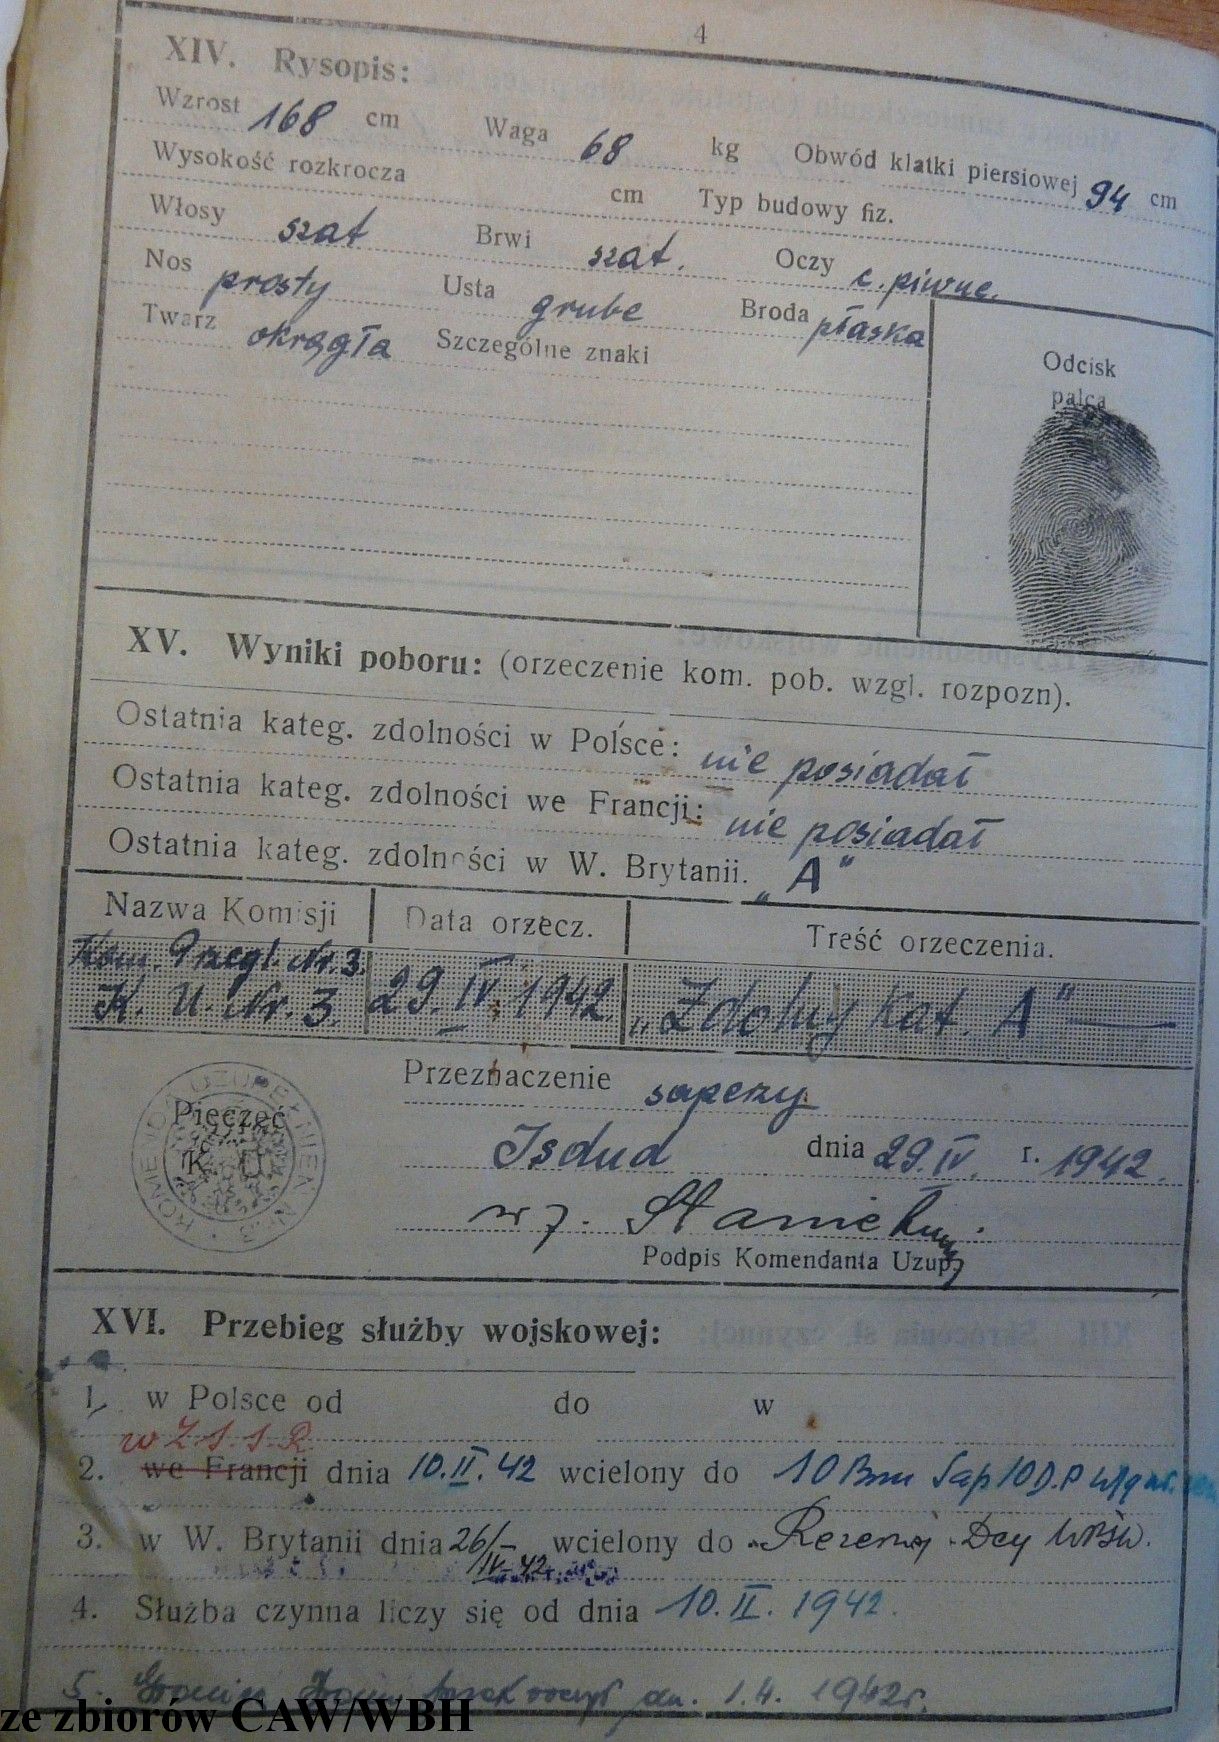 4
XIV. Rysopis:
Wzrost 168 cm Waga 68 kg Obwód klatki piersiowej 94 cm
Wysokość rozkrocza cm Typ budowy fiz.
Włosy szat Brwi szat. Oczy c. piwne.
Nos prosty Usta grube Broda płaska
Twarz okrągła Szczególne znaki
Odcisk
palca
XV. Wyniki poboru: (orzeczenie kom. pob. wzgl. rozpozn).
Ostatnia kateg. zdolności w Polsce: nie posiadał
Ostatnia kateg. zdolności we Francji: nie posiadał
Ostatnia kateg. zdolności w W. Brytanii. „A"
Nazwa Komisji Data orzecz. Treść orzeczenia.
Kom. Przegl. Nr. 3.
K. U. Nr. 3. 29. IV. 1942. „Zdolny Kat. A" —
Przeznaczenie saperzy
Pieczęć
K U
KOMENDA UZUPEŁNIEŃ Nr 3
Isdud dnia 29. IV. r. 1942.
Podpis Komendanta Uzup.
XVI. Przebieg służby wojskowej:
1. w Polsce od do w
w Z.S.S.R.
2. we Francji dnia 10. II. 42 wcielony do 10 Baon Sap 10 D.P
3. w W. Brytanii dnia 26/- wcielony do Dcy
IV-42
4. Służba czynna liczy się od dnia 10. II. 1942.
5. Granicę przekroczył dn. 1. 4. 1942r.
ze zbiorów CAW/WBH